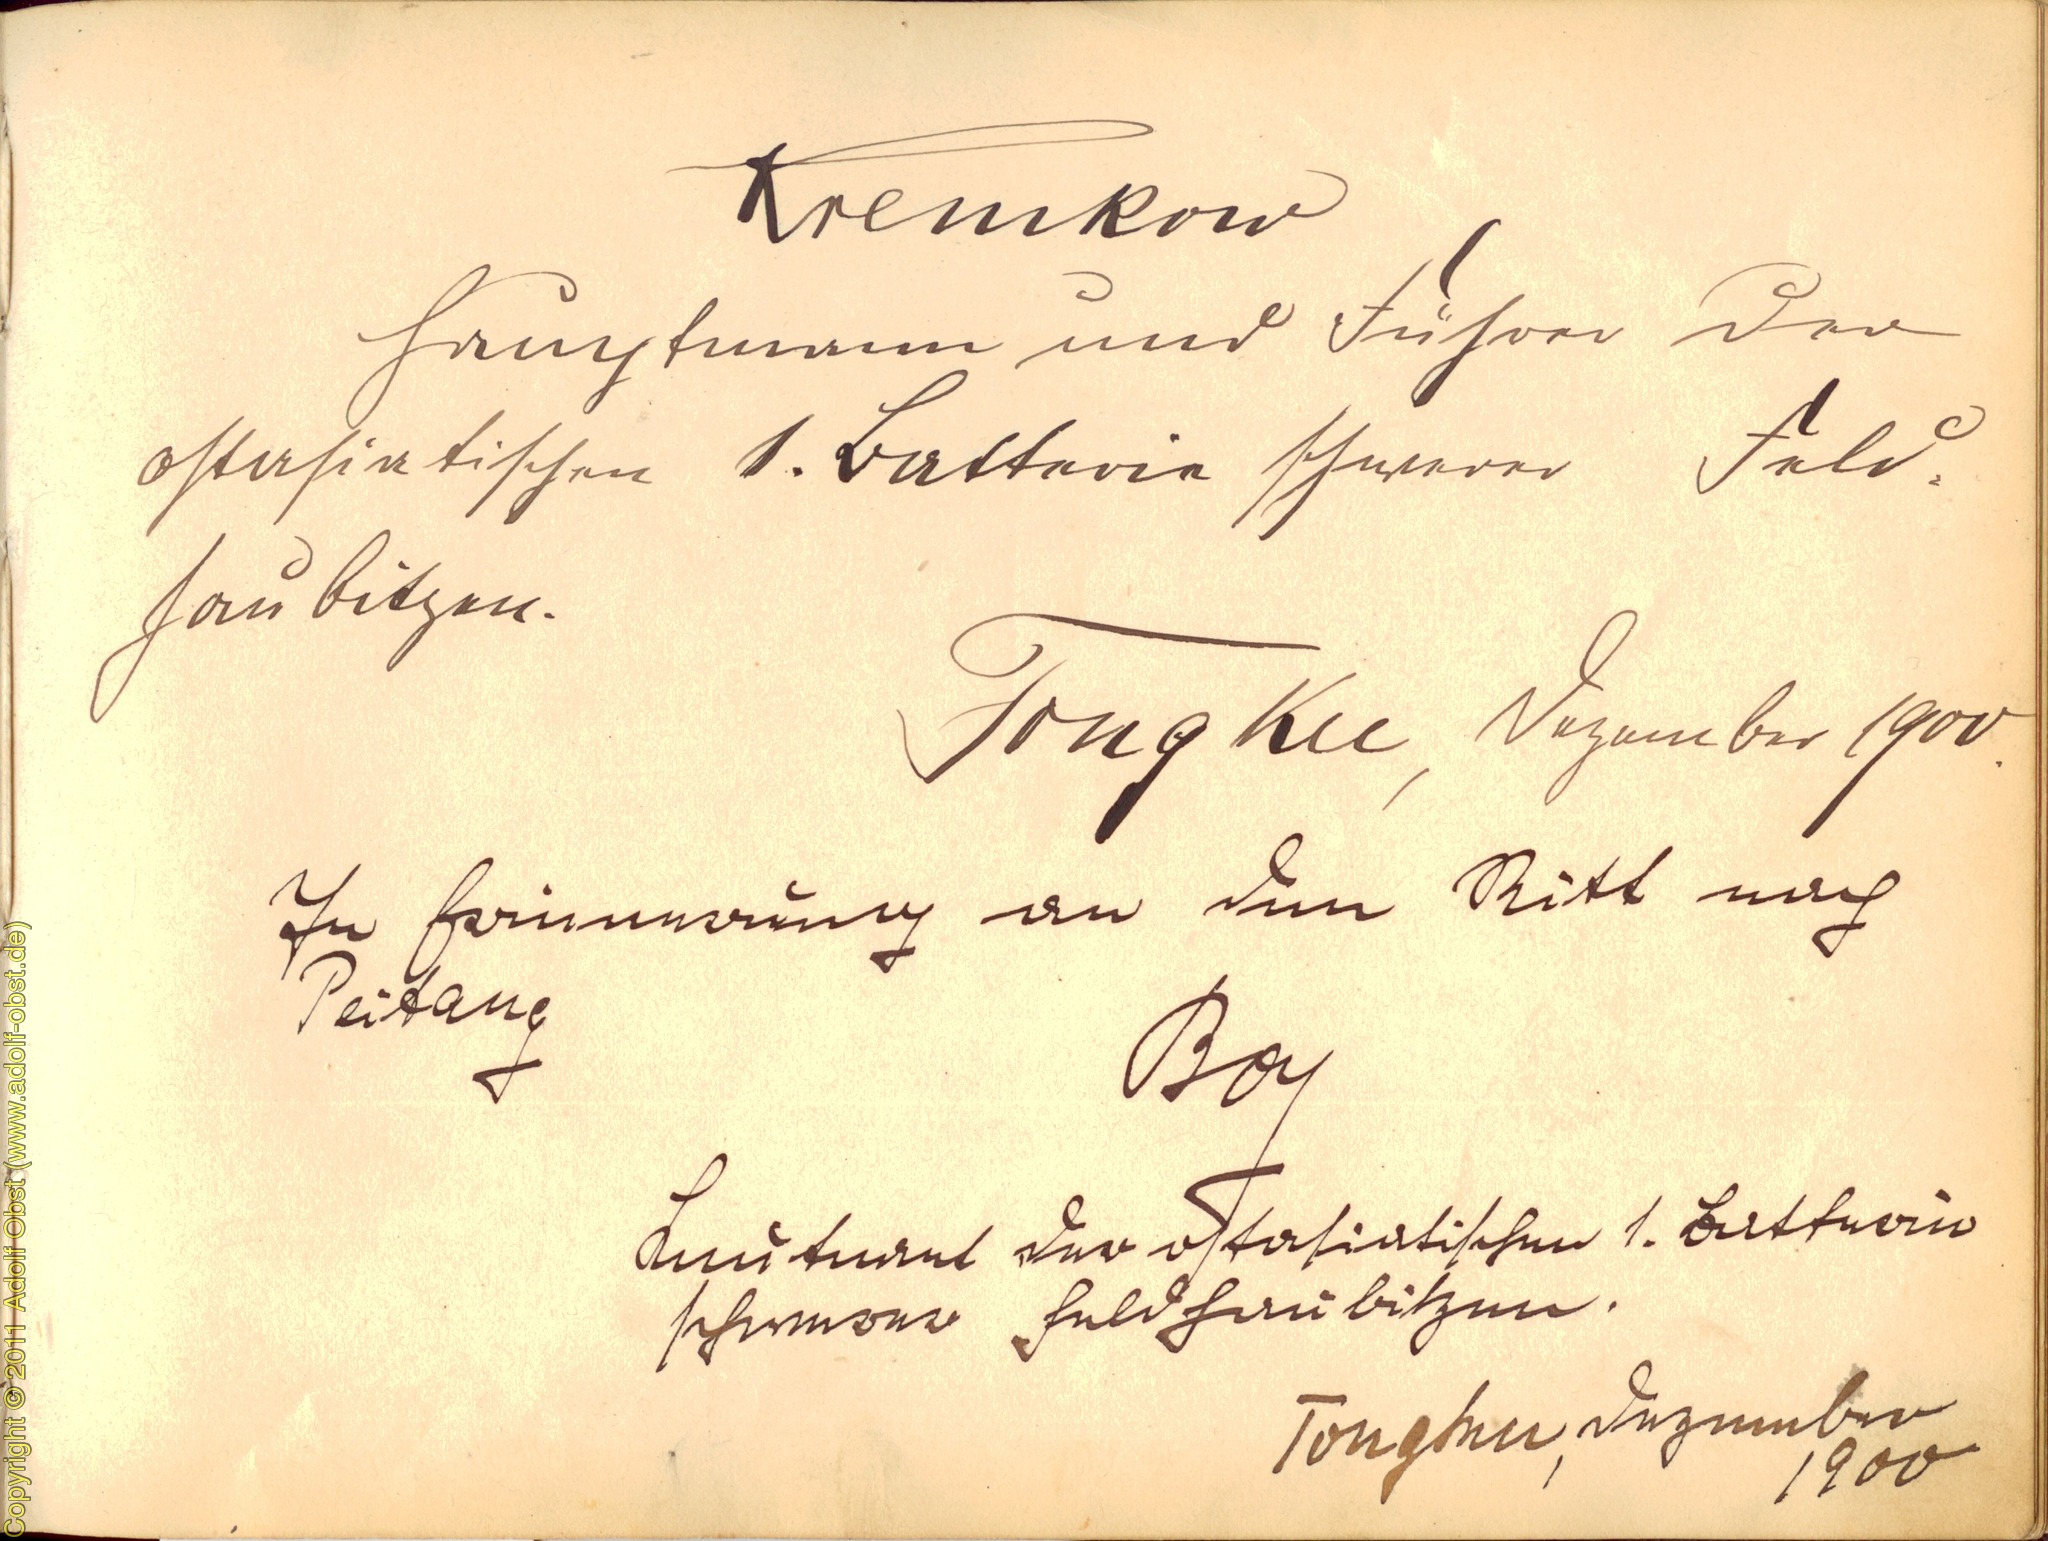 Kremkow
Hauptmann und Führer der
ostasiatischen 1. Batterie schwerer Feld-
haubitzen.
Tongku, Dezember 1900.
In Erinnerung an den Ritt nach
Peitang
Boy
Leutnant der ostasiatischen 1. Batterie
schwerer Feldhaubitzen.
Tongku, Dezember
1900
Copyright © 2011 Adolf Obst (www.adolf-obst.de)